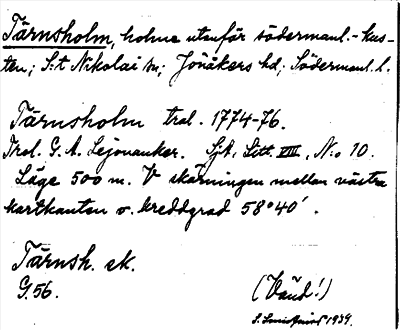 Tärnsholm, holme utanför södermanl.-kus-
ten; S:t Nikolai sn; Jönåkers hd; Södermanl. l.
Tärnsholm tral. 1774-76.
Trol. G. A. Lejonanker. Sjk, Litt. VIII, N:o 10.
Läge 500 m. V skärningen mellan västra
kartkanten o. breddgrad 58°40'.
Tärnsh. sk.
G.56.
(Vänd!)
S. 1939.